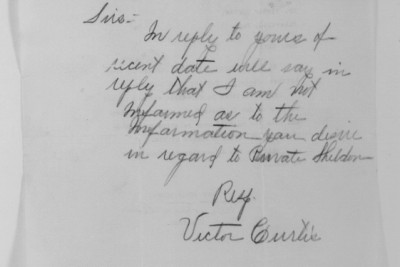 Sirs:-
In reply to yours of
recent date will say in
reply that I am not
informed as to the
information you desire
in regard to Private Sheldon
Resy.
Victor Curtis